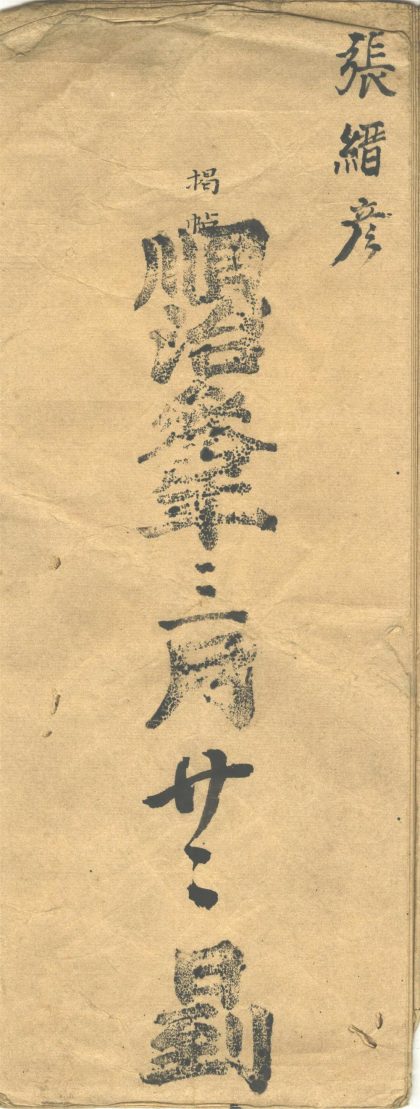 張縉彦
揭帖
順治叁年三月廿二日到